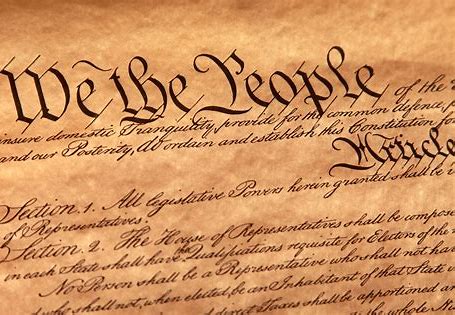 We the People of the
insure domestic Tranquility, provide for the common defence,
and our Posterity, do ordain and establish this Constitution for
Article
Section. 1. All legislative Powers herein granted shall be
of Representatives.
Section. 2. The House of Representatives shall be compose
in each State shall have Qualifications requisite for Electors of the
No Person shall be a Representative who shall not hav
and who shall not, when elected, be an Inhabitant of that State
and direct Taxes shall be apportioned a
whole Nu